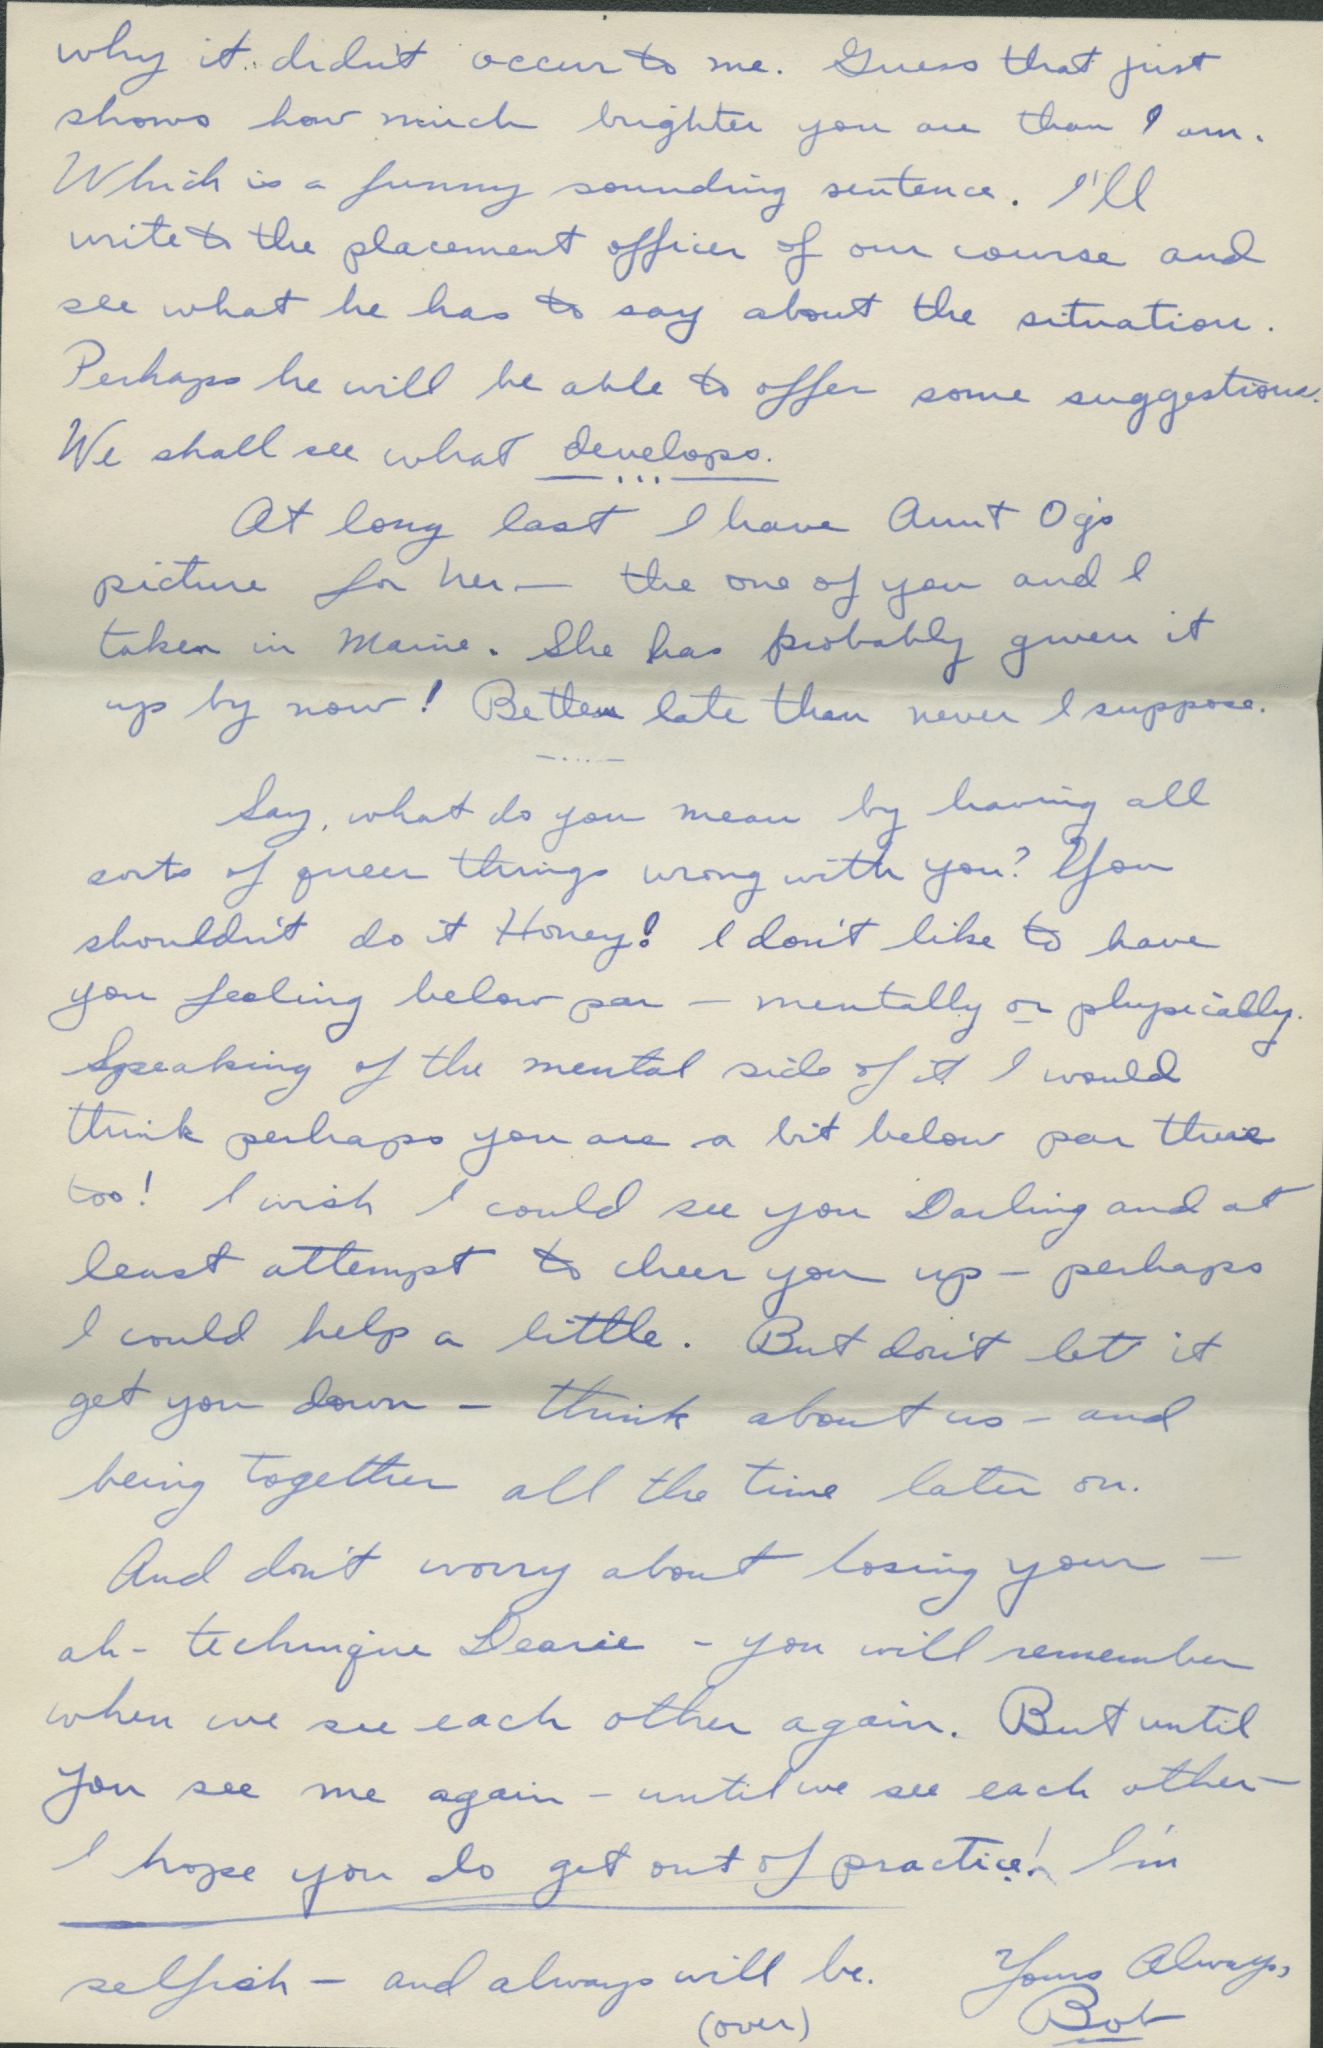 why it didn't occur to me. Guess that just
shows how much brighter you are than I am.
Which is a funny sounding sentence. I'll
write to the placement officer of our course and
see what he has to say about the situation.
Perhaps he will be able to offer some suggestions.
We shall see what develops.
At long last I have Aunt Og's
picture for her — the one of you and I
taken in Maine. She has probably given it
up by now! Better late than never I suppose.
Say, what do you mean by having all
sorts of queer things wrong with you? You
shouldn't do it Honey! I don't like to have
you feeling below par — mentally or physically.
Speaking of the mental side of it I would
think perhaps you are a bit below par there
too! I wish I could see you Darling and at
least attempt to cheer you up — perhaps
I could help a little. But don't let it
get you down — think about us — and
being together all the time later on.
And don't worry about losing your —
ah — technique Dearie — you will remember
when we see each other again. But until
you see me again — until we see each other —
I hope you do get out of practice! I'm
selfish — and always will be.
Yours Always,
Bob
(over)